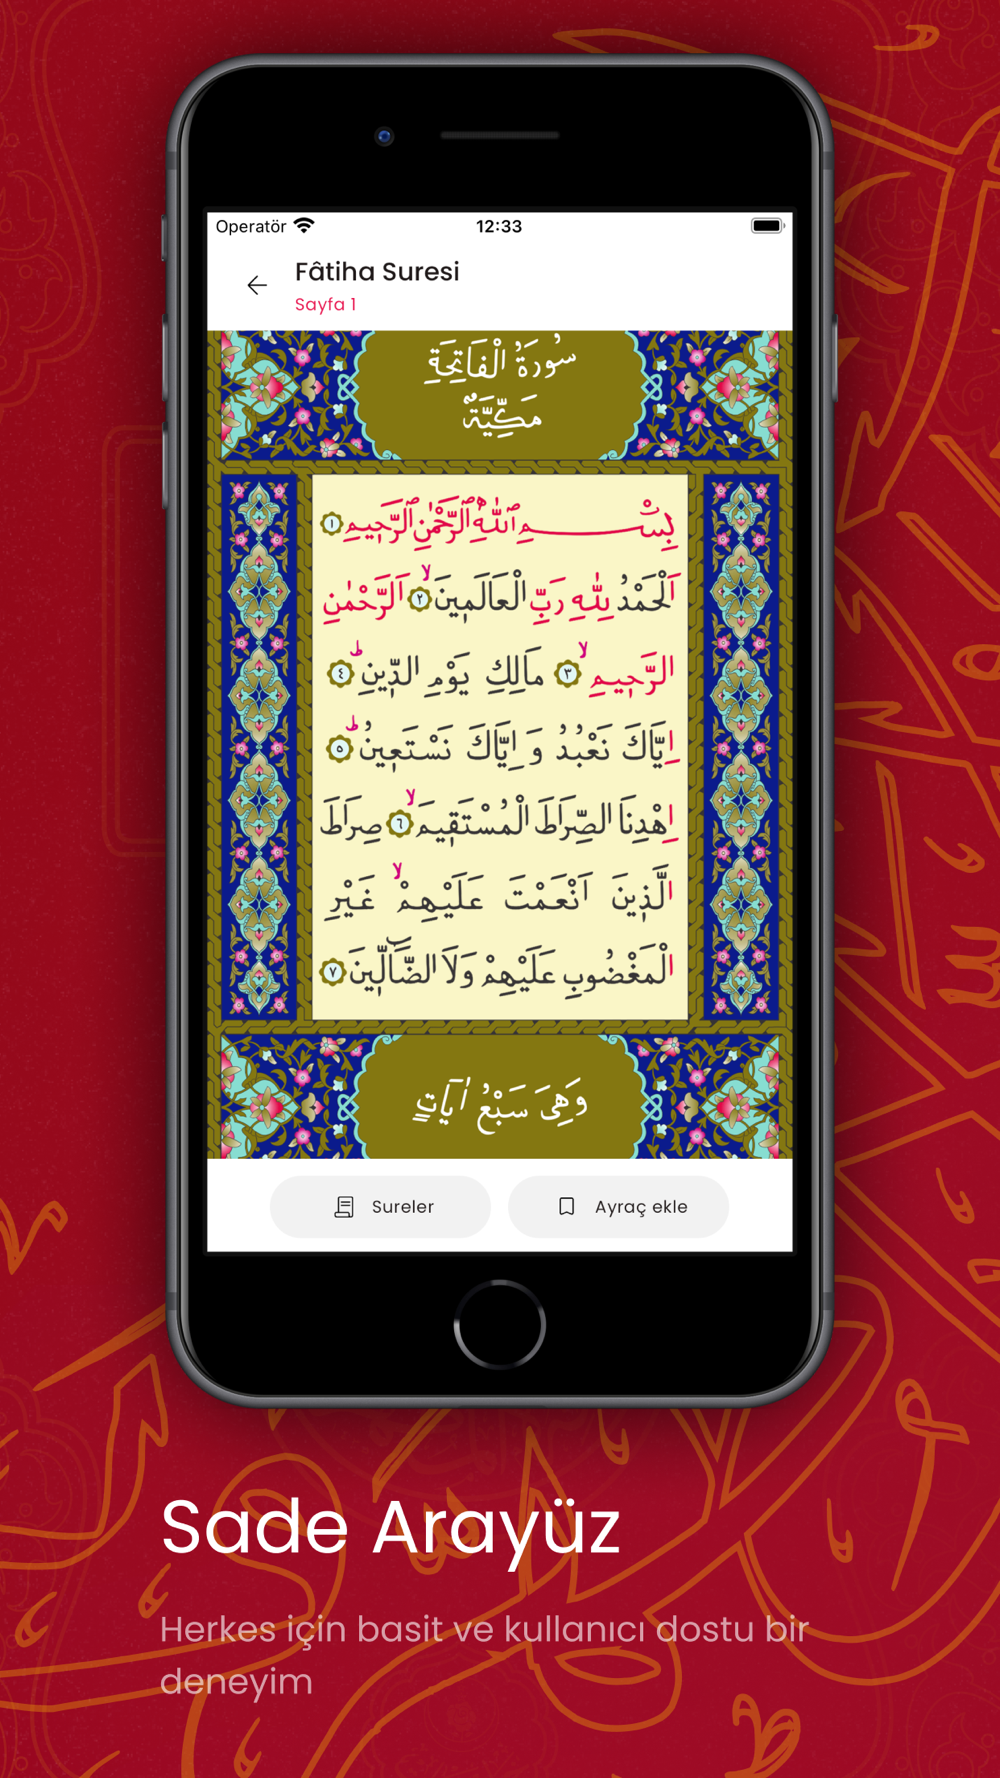 Operatör
12:33
Fâtiha Suresi
Sayfa 1
سُورَةُ الْفَاتِحَةِ
مَكِّيَّةٌ
بِسْمِ ٱللّٰهِ ٱلرَّحْمٰنِ ٱلرَّحٖيمِ ١
اَلْحَمْدُ لِلّٰهِ رَبِّ الْعَالَمٖينَۙ ٢ اَلرَّحْمٰنِ
الرَّحٖيمِۙ ٣ مَالِكِ يَوْمِ الدّٖينِؕ ٤
اِيَّاكَ نَعْبُدُ وَ اِيَّاكَ نَسْتَعٖينُؕ ٥
اِهْدِنَا الصِّرَاطَ الْمُسْتَقٖيمَۙ ٦ صِرَاطَ
الَّذٖينَ اَنْعَمْتَ عَلَيْهِمْۙ غَيْرِ
الْمَغْضُوبِ عَلَيْهِمْ وَلَا الضَّٓالّٖينَ ٧
وَهِىَ سَبْعُ اٰيَاتٍ
Sureler
Ayraç ekle
Sade Arayüz
Herkes için basit ve kullanıcı dostu bir
deneyim